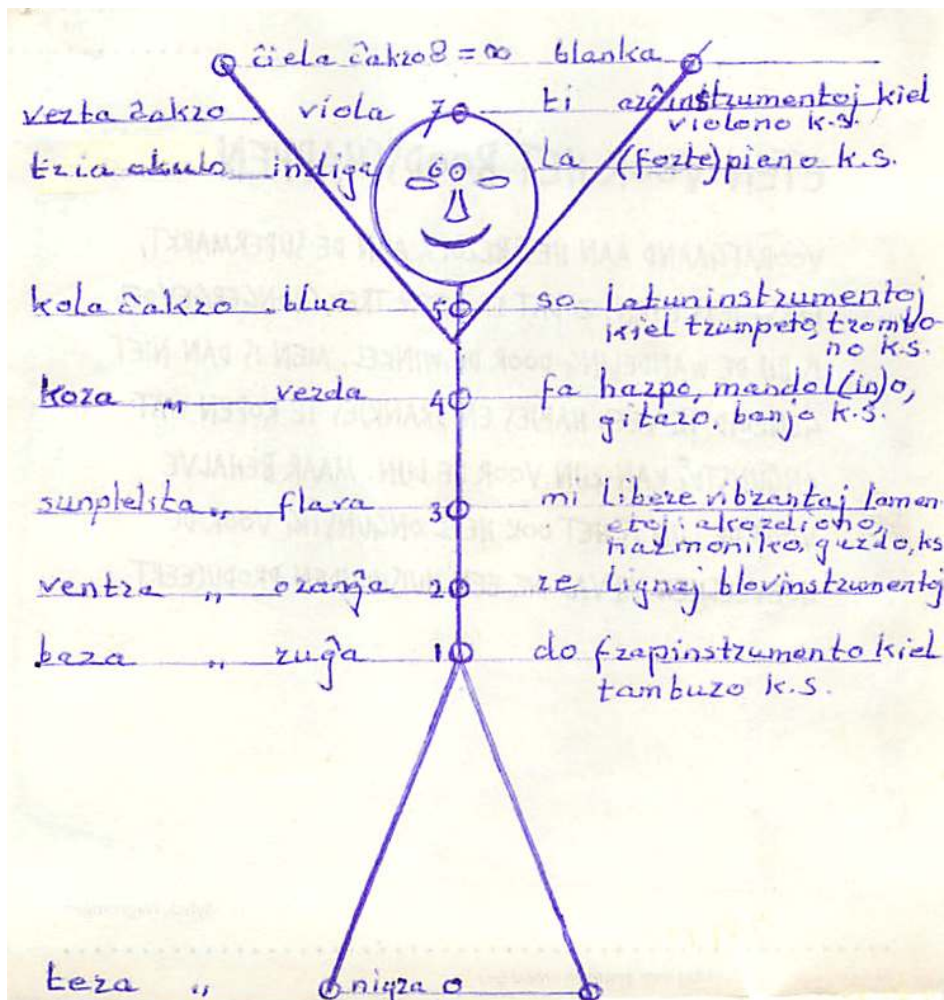 ĉiela ĉakro 8 = ∞ blanka
verta ĉakro viola 7 ti arĉinstrumentoj kiel
violono k.s.
tria okulo indiga 6 la (forte)piano k.s.
kola ĉakro blua 5 so latuninstrumentoj
kiel trumpeto, trombo-
no k.s.
kora „ verda 4 fa harpo, mandol(in)o,
gitaro, banjo k.s.
sunpleksta „ flava 3 mi libere vibrantaj lamen
etoj: akordiono,
harmoniko, gurdo, ks
ventra „ oranĝa 2 re lignaj blovinstrumentoj
baza „ ruĝa 1 do frapinstrumento kiel
tamburo k.s.
tera „ nigra 0